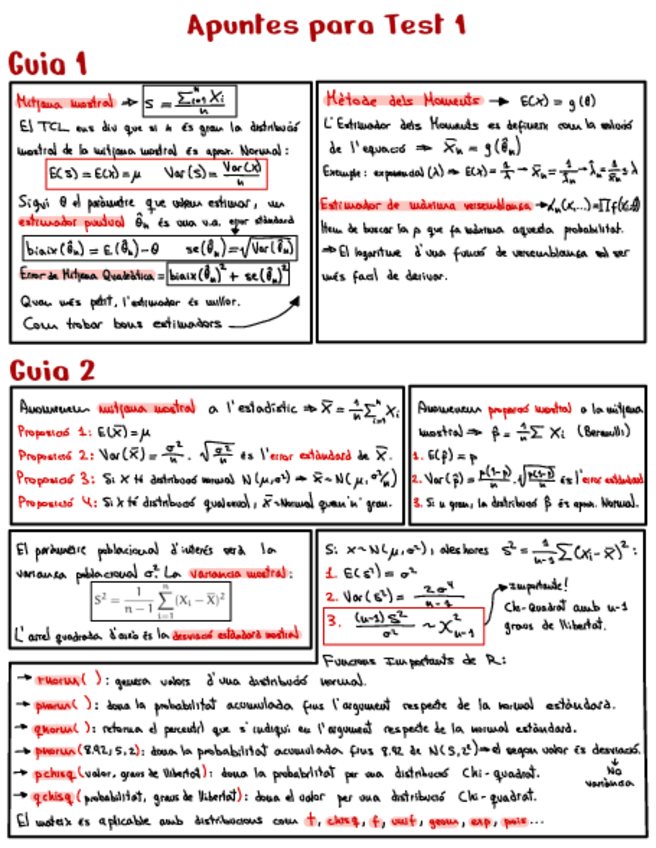 Apuntes para Test 1
Guia 1
Mitjana mostral ⇒ S = Σⁿᵢ₌₁ Xᵢ / n
El TCL ens diu que si n és gran la distribució
mostral de la mitjana mostral és aprox. Normal:
E(S) = E(X) = μ Var(S) = Var(X)/n
Sigui θ el paràmetre que volem estimar, un
estimador puntual θ̂ₙ és una v.a. error estàndard
biaix(θ̂ₙ) = E(θ̂ₙ) - θ se(θ̂ₙ) = √Var(θ̂ₙ)
Error de Mitjana Quadràtica = biaix(θ̂ₙ)² + se(θ̂ₙ)²
Quan més petit, l'estimador és millor.
Com trobar bons estimadors
Mètode dels Moments → E(X) = g(θ)
L'Estimador dels Moments es defineix com la solució
de l'equació ⇒ X̄ₙ = g(θ̂ₙ)
Exemple: exponencial (λ) ⇒ E(X) = 1/λ → X̄ₙ = 1/λ̂ₙ → λ̂ₙ = 1/X̄ₙ
Estimador de màxima versemblança ⇒
Hem de buscar la p que fa màxima aquesta probabilitat.
⇒ El logaritme d'una funció de versemblança sol ser
més fàcil de derivar.
Guia 2
Anomenem mitjana mostral a l'estadístic ⇒ X̄ = 1/n Σⁿᵢ₌₁ Xᵢ
Proposició 1: E(X̄) = μ
Proposició 2: Var(X̄) = σ²/n. √σ²/n és l'error estàndard de X̄.
Proposició 3: Si X té distribució normal N(μ,σ²) ⇒ X̄ ~ N(μ, σ²/n)
Proposició 4: Si X té distribució qualsevol, X̄ ~ Normal quan 'n' gran.
Anomenem proporció mostral a la mitjana
mostral ⇒ p̂ = 1/n Σ Xᵢ (Bernoulli)
1. E(p̂) = p
2. Var(p̂) = p(1-p)/n. √p(1-p)/n és l'error estàndard
3. Si n gran, la distribució p̂ és aprox. Normal.
El paràmetre poblacional d'interès serà la
variança poblacional σ². La variança mostral:
S² = 1/(n-1) Σⁿᵢ₌₁ (Xᵢ - X̄)²
L'arrel quadrada d'això és la desviació estàndard mostral
Si X ~ N(μ,σ²), aleshores S² = 1/(n-1) Σ(Xᵢ - X̄)²:
1. E(S²) = σ²
2. Var(S²) = 2σ⁴/(n-1)
3. (n-1)S²/σ² ~ X²ₙ₋₁
Important!
Chi-Quadrat amb n-1
graus de llibertat.
Funcions Importants de R:
→ rnorm( ): genera valors d'una distribució normal.
→ pnorm( ): dona la probabilitat acumulada fins l'argument respecte de la normal estàndard.
→ qnorm( ): retorna el percentil que s'indiqui en l'argument respecte de la normal estàndard.
→ pnorm(8.92,5,2): dona la probabilitat acumulada fins 8.92 de N(5,2²) ⇒ el segon valor és desviació.
↓
No
variància
→ pchisq(valor, graus de llibertat): dona la probabilitat per una distribució Chi-quadrat.
→ qchisq(probabilitat, graus de llibertat): dona el valor per una distribució Chi-quadrat.
El mateix és aplicable amb distribucions com t, chisq, f, unif, geom, exp, pois...